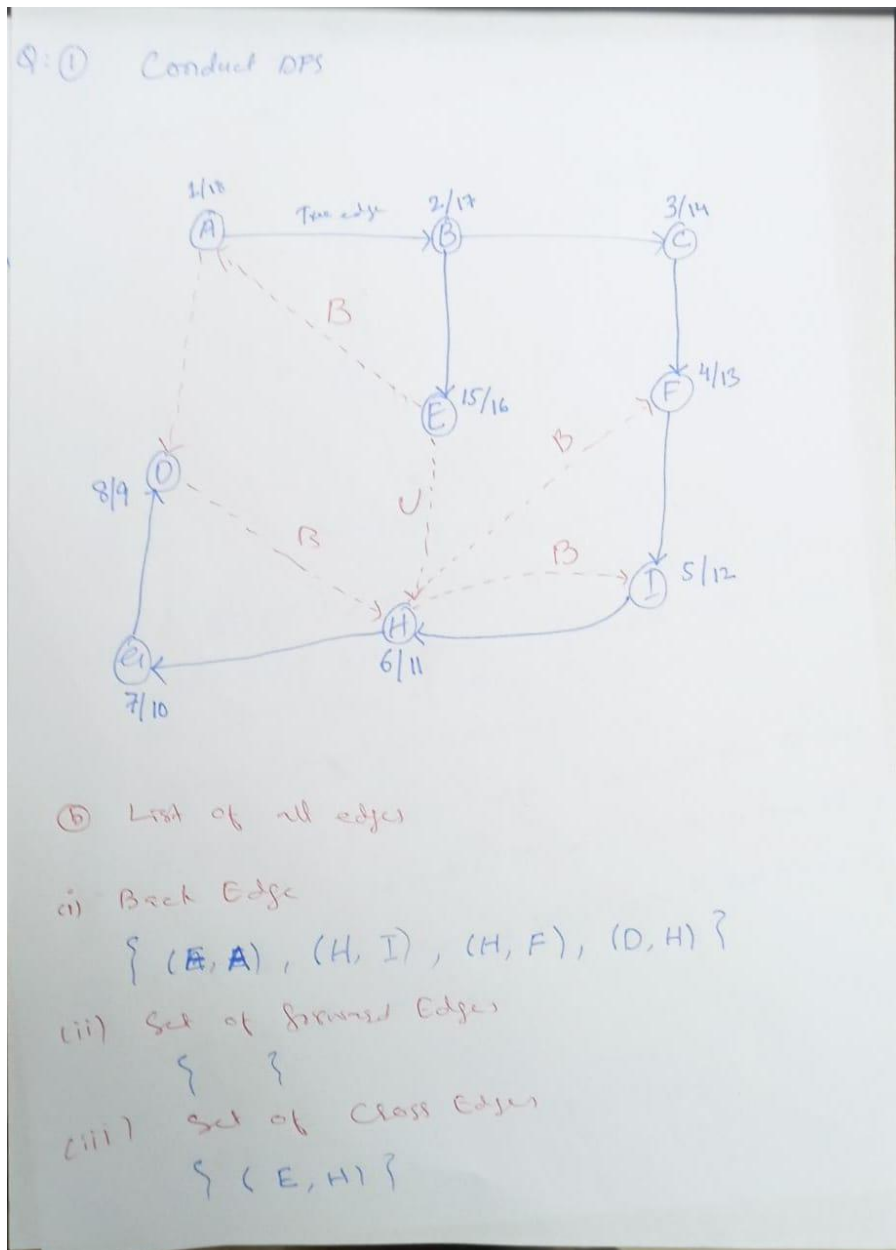 Q: ① Conduct DFS
1/18
Tree edge
2/17
3/14
A
B
C
B
F
4/13
E
15/16
B
D
8/9
U
B
B
I
5/12
H
6/11
G
7/10
ⓑ List of all edges
(i) Back Edge
{ (E, A), (H, I), (H, F), (D, H) }
(ii) Set of forward Edges
{ }
(iii) Set of Cross Edges
{ (E, H) }